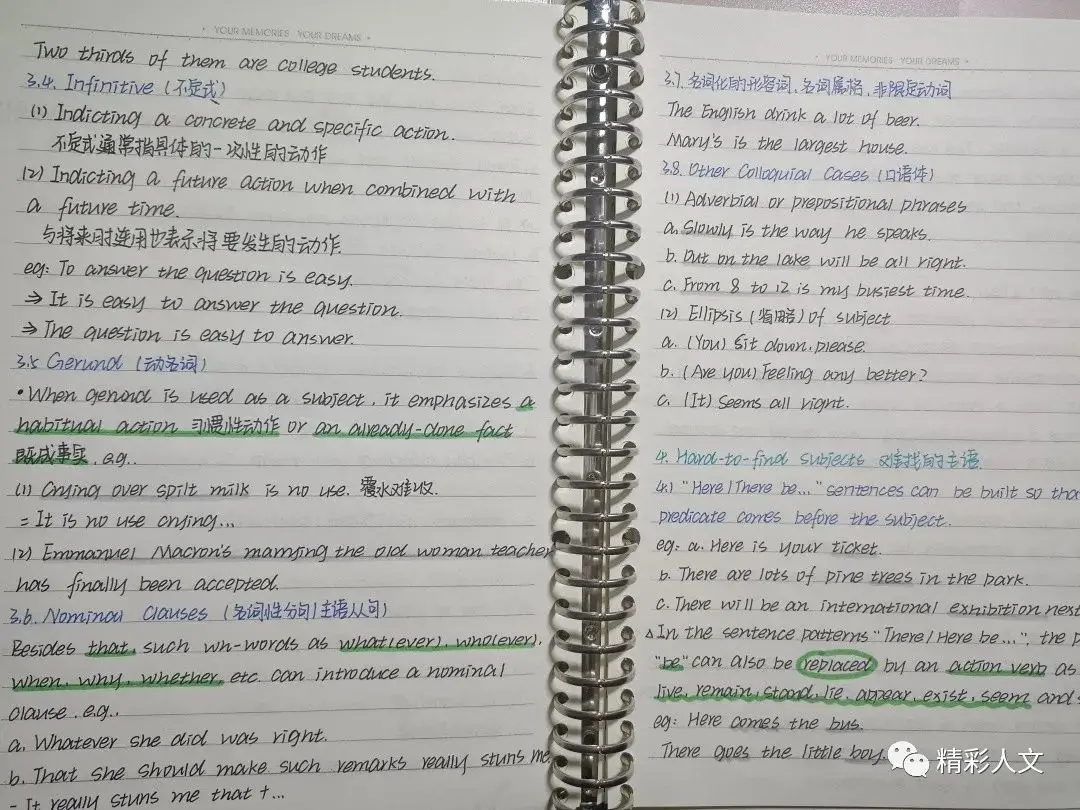 YOUR MEMORIES YOUR DREAMS
Two thirds of them are college students.
3.4. Infinitive (不定式)
(1) Indicting a concrete and specific action.
不定式通常指具体的一次性的动作
(2) Indicting a future action when combined with
a future time.
与将来时连用也表示将要发生的动作.
eg: To answer the question is easy.
⇒ It is easy to answer the question.
⇒ The question is easy to answer.
3.5 Gerund (动名词)
• When gerund is used as a subject, it emphasizes a
habitual action 习惯性动作 or an already-done fact
既成事实, e.g..
(1) Crying over spilt milk is no use. 覆水难收.
= It is no use crying...
(2) Emmanuel Macron's marrying the old woman teacher
has finally been accepted.
3.6. Nominal Clauses (名词性分句/主语从句)
Besides that, such wh-words as what(ever), who(ever),
when, why, whether, etc. can introduce a nominal
clause, e.g.,
a. Whatever she did was right.
b. That she should make such remarks really stuns me.
- It really stuns me that +...
YOUR MEMORIES YOUR DREAMS
3.7. 名词化的形容词, 名词属格, 非限定动词
The English drink a lot of beer.
Mary's is the largest house.
3.8. Other Colloquial Cases (口语体)
(1) Adverbial or prepositional phrases
a. Slowly is the way he speaks.
b. Out on the lake will be all right.
c. From 8 to 12 is my busiest time.
(2) Ellipsis (省略) of subject
a. (You) Sit down, please.
b. (Are you) Feeling any better?
c. (It) Seems all right.
4. Hard-to-find subjects 难找的主语.
4.1 "Here/There be..." sentences can be built so tha
predicate comes before the subject.
eg: a. Here is your ticket.
b. There are lots of pine trees in the park.
c. There will be an international exhibition next
△In the sentence patterns "There/Here be...", the p
"be" can also be replaced by an action verb as
live, remain, stand, lie, appear, exist, seem and s
eg: Here comes the bus.
There goes the little boy.
精彩人文